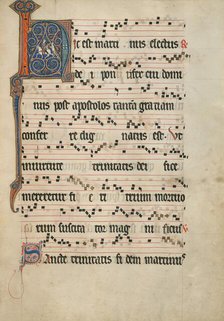 Hic est marti nus electus
dei pon ti fex cui domi
nus post apostolos tantam gratiam
confer re dig natus est. Vt
in uirtute trinitatis dei fice
mereretur fi e ri trium mortuo
rum suscita tor mag ni ficus
Sancte trinitatis fi dem martinus